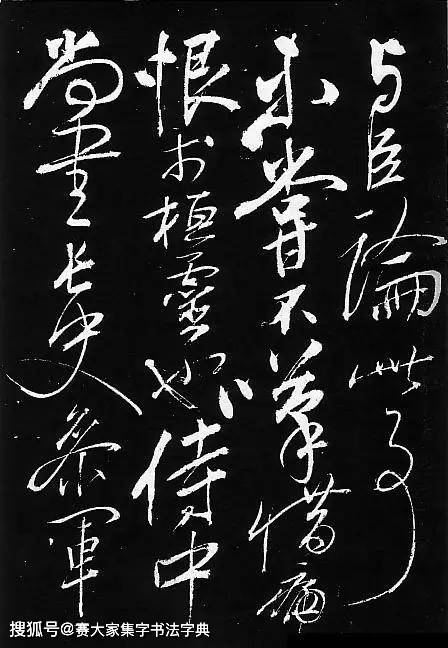 与臣論此事
未嘗不嘆惜痛
恨於桓靈也侍中
尚書長史參軍
搜狐号@赛大家集字书法字典